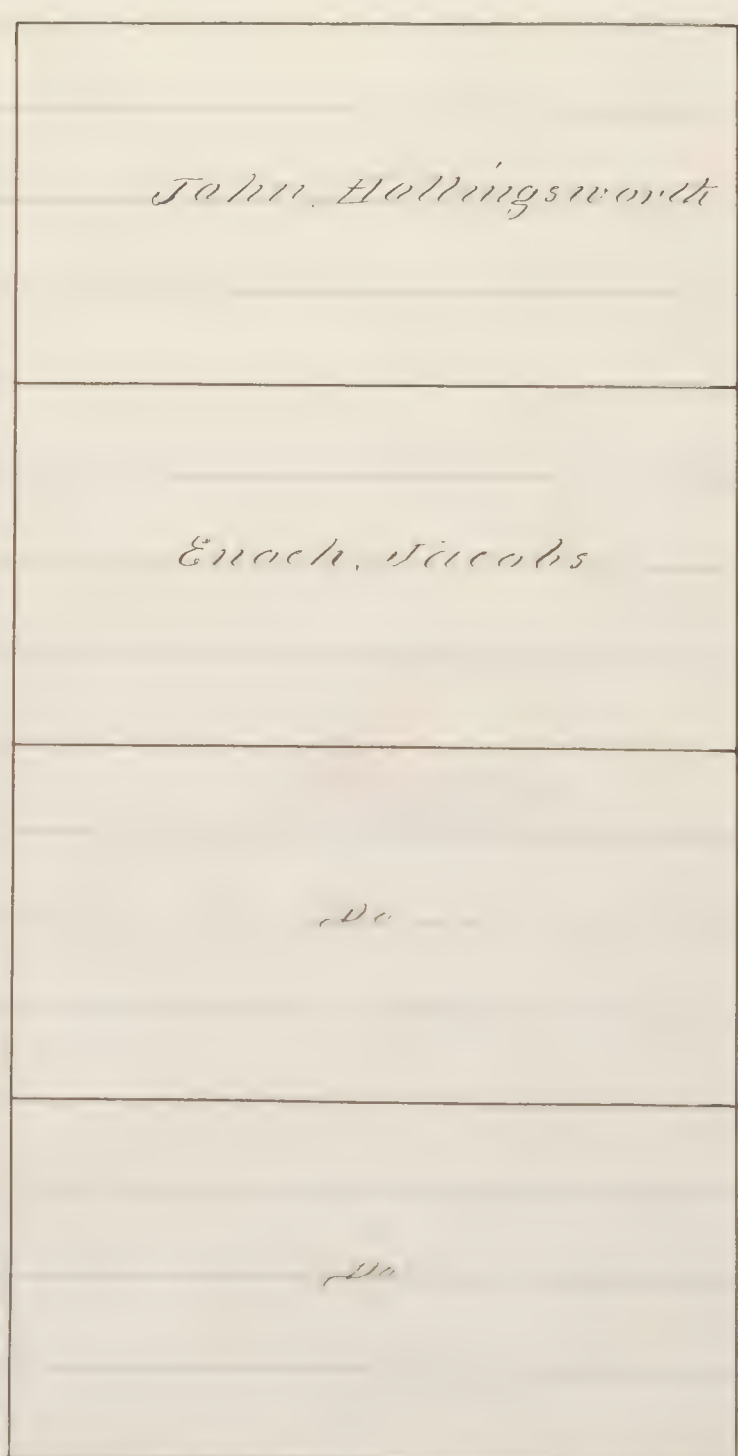 John. Hollingsworth
Enoch. Jacobs
Do - -
Do